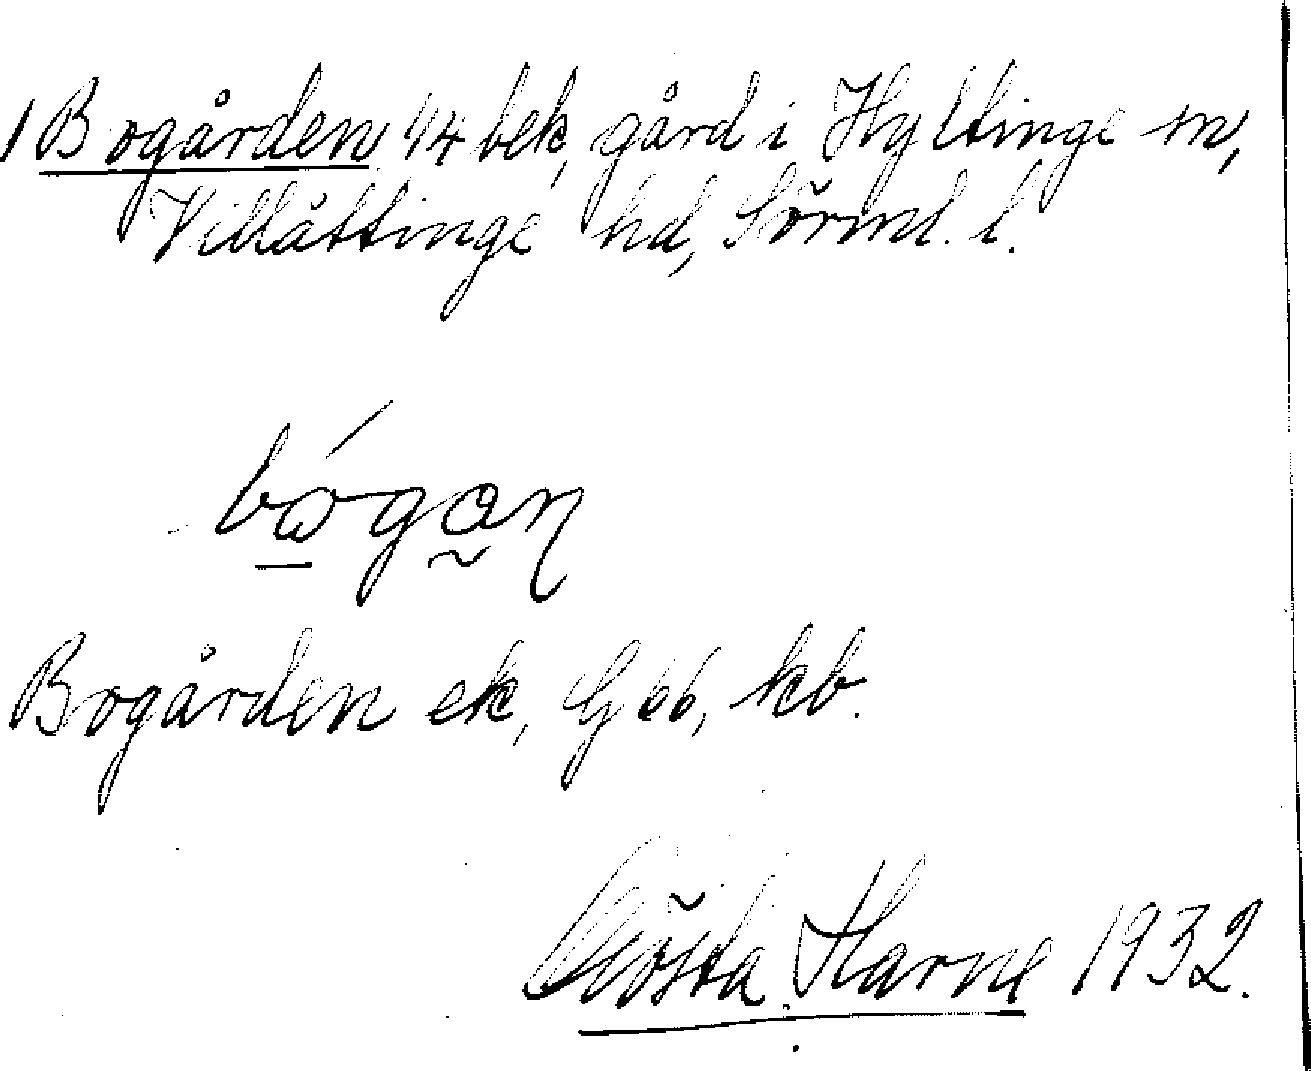 1 Bogården 44 bek, gård i Hyltinge sn,
Villåttinge hd, Sörml. l.
bógan
Bogården ek, G 66, kb.
Gösta Harne 1932.